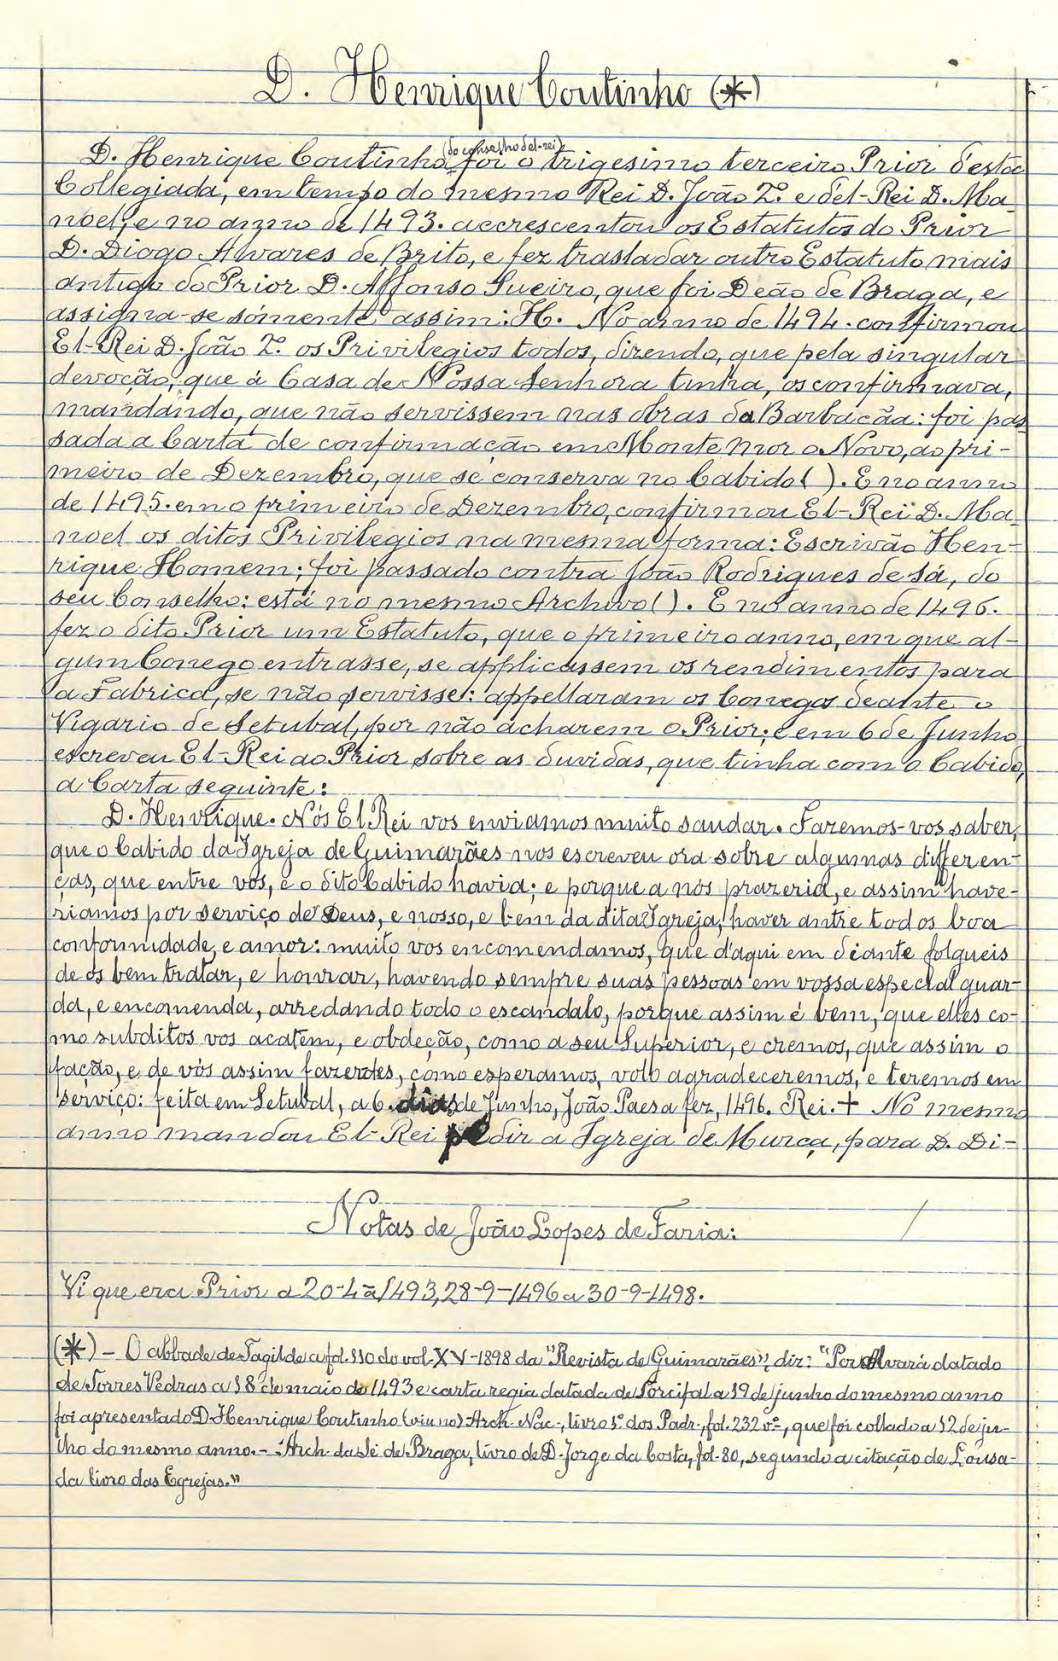 D. Henrique Coutinho (*)
(do conselho del-rei)
D. Henrique Coutinho, foi o trigesimo terceiro Prior d'esta
Collegiada, em tempo do mesmo Rei D. João 2.º e del-Rei D. Ma-
noel, e no anno de 1493. accrescentou os Estatutos do Prior
D. Diogo Alvares de Brito, e fez trasladar outro Estatuto mais
antigo do Prior D. Affonso Sueiro, que foi Deão de Braga, e
assigna-se sómente assim: H. No anno de 1494. confirmou
El-Rei D. João 2.º os Privilegios todos, dizendo, que pela singular
devoção, que á Casa de Nossa Senhora tinha, os confirmava,
mandando, que não servissem nas obras da Barbacãa: foi pas-
sada a Carta de confirmação em Monte Mor o Novo, ao pri-
meiro de Dezembro, que se conserva no Cabido ( ). E no anno
de 1495. em o primeiro de Dezembro, confirmou El-Rei D. Ma-
noel os ditos Privilegios na mesma forma: Escrivão Hen-
rique Homem; foi passado contra João Rodrigues de Sá, do
seu Conselho: está no mesmo Archivo ( ). E no anno de 1496.
fez o dito Prior um Estatuto, que o primeiro anno, em que al-
gum Conego entrasse, se applicassem os rendimentos para
a Fabrica, se não servisse: appellaram os Conegos deante o
Vigario de Setubal, por não acharem o Prior; e em 6 de Junho
escreveu El-Rei ao Prior sobre as duvidas, que tinha com o Cabido,
a Carta seguinte:
D. Henrique. Nós El Rei vos enviamos muito saudar. Fazemos-vos saber,
que o Cabido da Igreja de Guimarães nos escreveu ora sobre algumas differen-
ças, que entre vós, e o dito Cabido havia; e porque a nós prazeria, e assim have-
riamos por serviço de Deus, e nosso, e bem da dita Igreja, haver antre todos boa
conformidade, e amor: muito vos encomendamos, que d'aqui em diante folgueis
de os bem tratar, e honrar, havendo sempre suas pessoas em vossa especial guar-
da, e encomenda, arredando todo o escandalo, porque assim é bem, que elles co-
mo subditos vos acatem, e obdeção, como a seu Superior, e cremos, que assim o
fação, e de vós assim fazerdes, como esperamos, volo agradeceremos, e teremos em
serviço: feita em Setubal, a 6. dias de Junho, João Paes a fez, 1496. Rei. + No mesmo
anno mandou El-Rei pedir a Igreja de Murça, para D. Di-
Notas de João Lopes de Faria:
Vi que era Prior a 20-4-1493, 28-9-1496 a 30-9-1498.
(*) - O abbade de Tagilde a fol. 110 do vol. XV-1898 da "Revista de Guimarães", diz: "Por Alvará datado
de Torres Vedras a 18 de maio de 1493 e carta regia datada de Torcifal a 19 de junho do mesmo anno
foi apresentado D. Henrique Coutinho (viu no) Arch. Nac., livro 1.º dos Padr., fol. 232 v.º, que foi collado a 12 de ju-
lho do mesmo anno. - Arch. da Sé de Braga, livro de D. Jorge da Costa, fol. 80, segundo a citação de Lousa-
da livro das Egrejas."